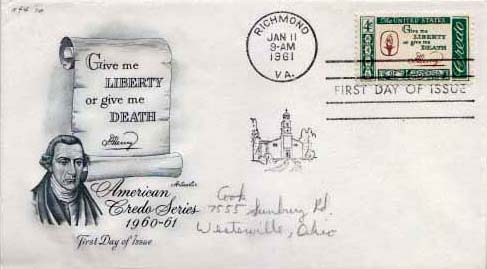 Give me
LIBERTY
or give me
DEATH
P Henry
Artmaster
American
Credo Series
1960-61
First Day of Issue
RICHMOND
JAN 11
9-AM
1961
VA.
THE UNITED STATES
4¢
Give me
LIBERTY
or give me
DEATH
P Henry
Credo
FIRST DAY OF ISSUE
Cook
7555 Sunbury Rd.
Westerville, Ohio